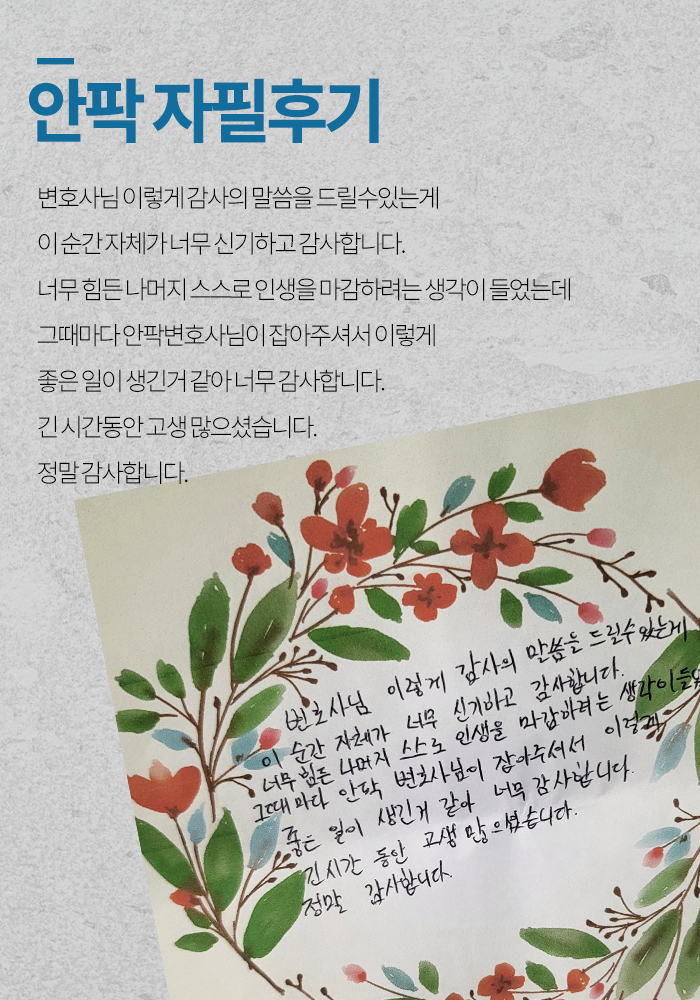 안팍 자필후기
변호사님 이렇게 감사의 말씀을 드릴수있는게
이 순간 자체가 너무 신기하고 감사합니다.
너무 힘든 나머지 스스로 인생을 마감하려는 생각이 들었는데
그때마다 안팍변호사님이 잡아주셔서 이렇게
좋은 일이 생긴거 같아 너무 감사합니다.
긴 시간동안 고생 많으셨습니다.
정말 감사합니다.
변호사님 이렇게 감사의 말씀을 드릴수있는게
이 순간 자체가 너무 신기하고 감사합니다.
너무 힘든 나머지 스스로 인생을 마감하려는 생각이 들었
그때마다 안팍 변호사님이 잡아주셔서 이렇게
좋은 일이 생긴거 같아 너무 감사합니다.
긴시간 동안 고생 많으셨습니다.
정말 감사합니다.